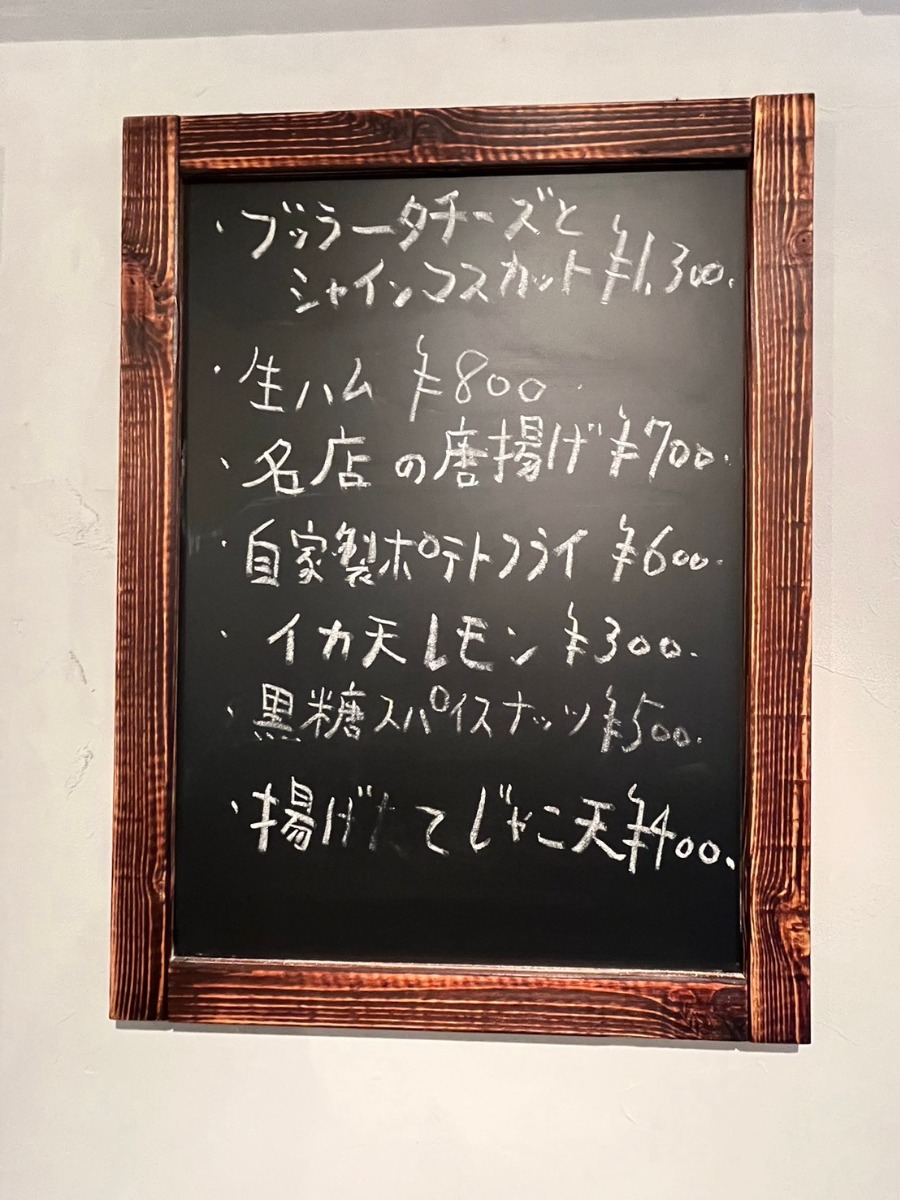 ・ブッラータチーズと
シャインマスカット ¥1,300.
・生ハム ¥800.
・名店の唐揚げ ¥700.
・自家製ポテトフライ ¥600.
・イカ天レモン ¥300.
・黒糖スパイスナッツ ¥500.
・揚げたてじゃこ天 ¥400.